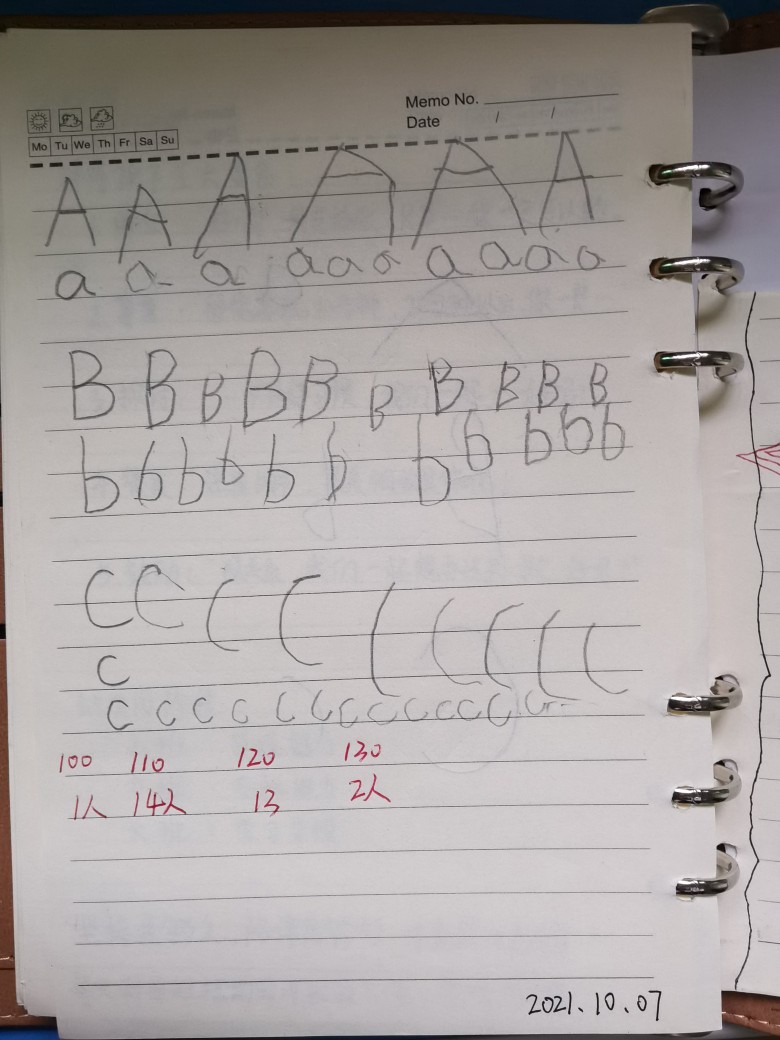 Memo No.
Date / /
Mo Tu We Th Fr Sa Su
A A A A A A
a a a a a a a a a a
B B B B B B B B B B
b b b b b b b b b b b
C C C C C C C C C
c
c c c c c c c c c c c c c
100 110 120 130
1人 14人 13 2人
2021.10.07